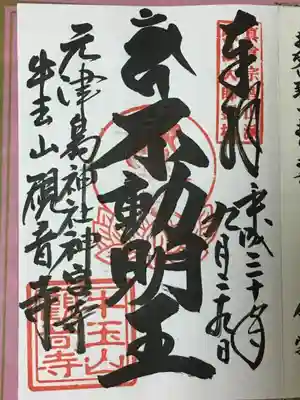 奉拝
平成三十年
九月二十九日
不動明王
元津島神社神宮寺
牛玉山觀音寺
牛玉山
觀音寺